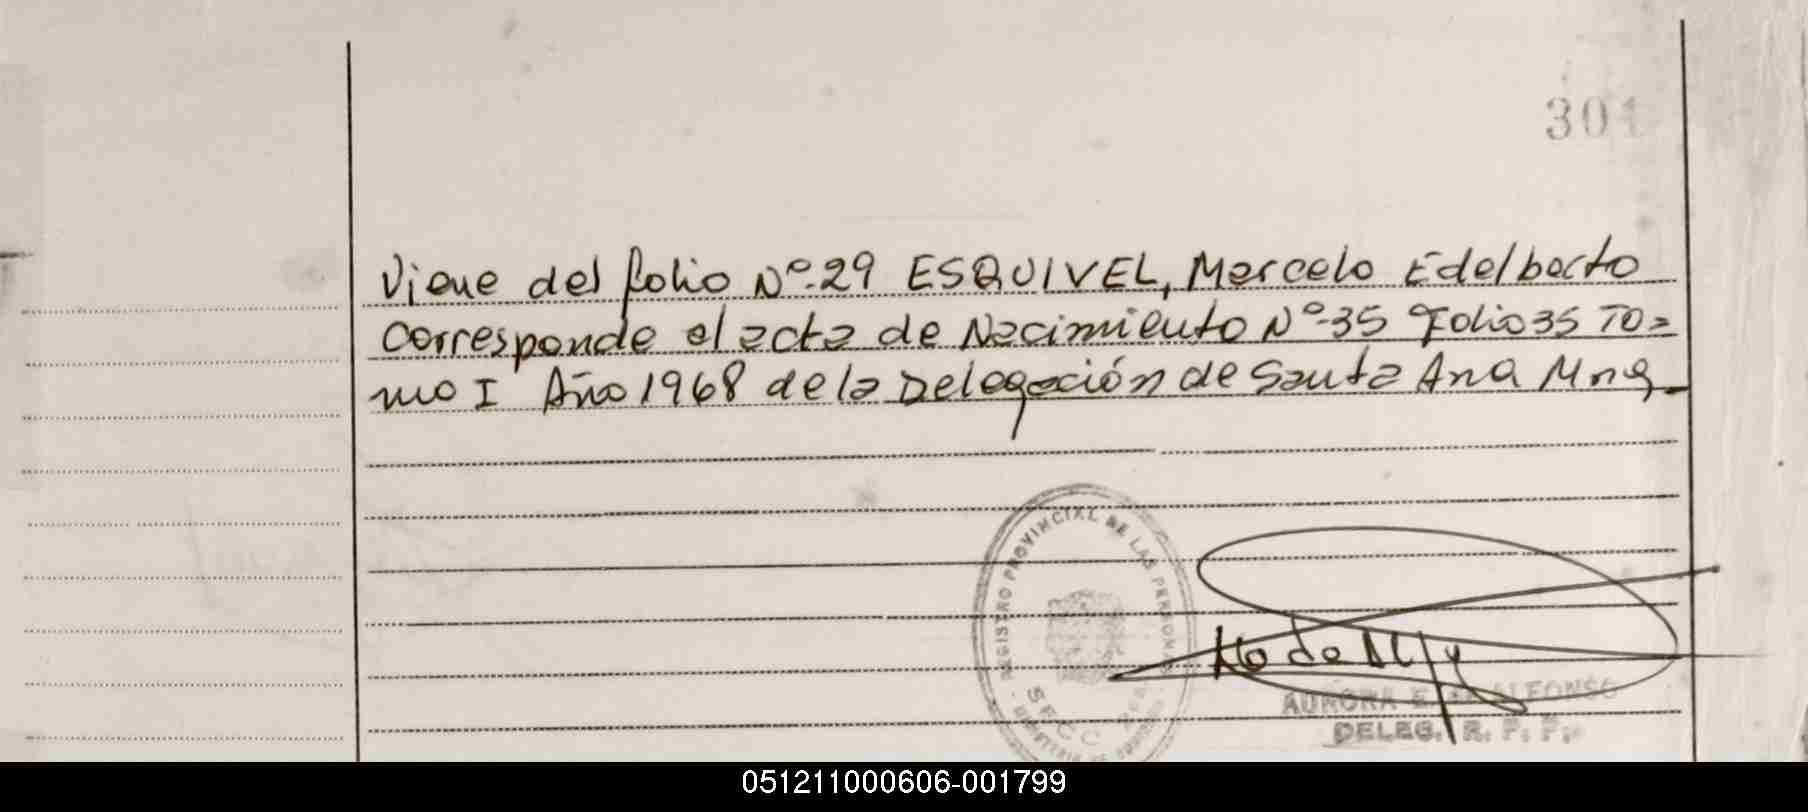 301
Viene del folio Nº-29 ESQUIVEL, Marcelo Edelberto
Corresponde al acta de Nacimiento Nº-35 Folio 35 To=
mo I Año 1968 de la Delegación de Santa Ana Mns.
REGISTRO PROVINCIAL DE LAS PERSONAS
SECC
AURORA E. DE ALFONSO
DELEG. R. P. P.
051211000606-001799